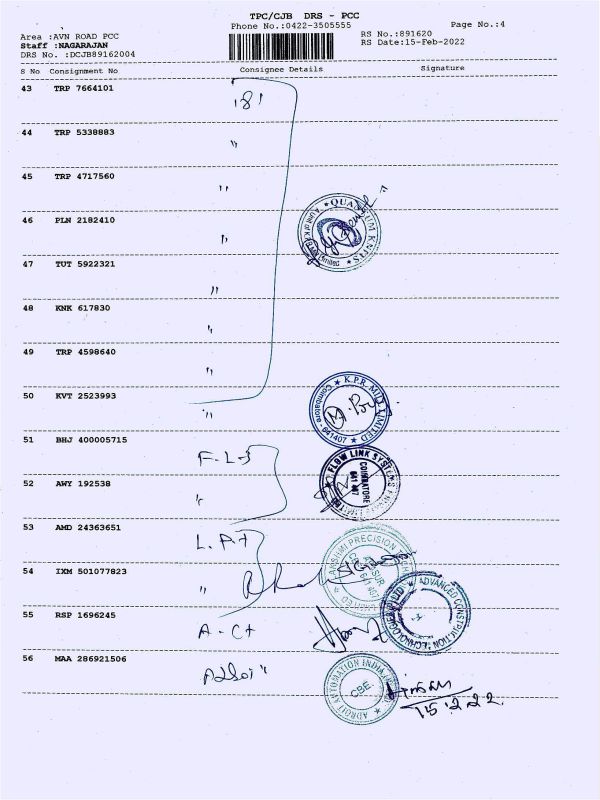 TPC/CJB DRS - PCC
Phone No.:0422-3505555
Page No.:4
Area :AVN ROAD PCC
Staff :NAGARAJAN
DRS No. :DCJB89162004
RS No.:891620
RS Date:15-Feb-2022
S No Consignment No Consignee Details Signature
43 TRP 7664101
44 TRP 5338883 "
45 TRP 4717560 "
QUANTUM KNITS
46 PLN 2182410 "
47 TUT 5922321 "
48 KNK 617830 "
49 TRP 4598640 "
50 KVT 2523993 "
K.P.R. MILL LIMITED
Coimbatore - 641407
51 BHJ 400005715 F-L-S
FLOW LINK SYSTEMS
COIMBATORE
641 407
52 AWY 192538 "
53 AMD 24363651 L.A+
LAKSHMI PRECISION
54 IXM 501077823 "
ADVANCED CONSTRUCTION TECHNOLOGIES (P) LTD
55 RSP 1696245 A-C+
56 MAA 286921506
ADROIT AUTOMATION INDIA
CBE
15.2.22.